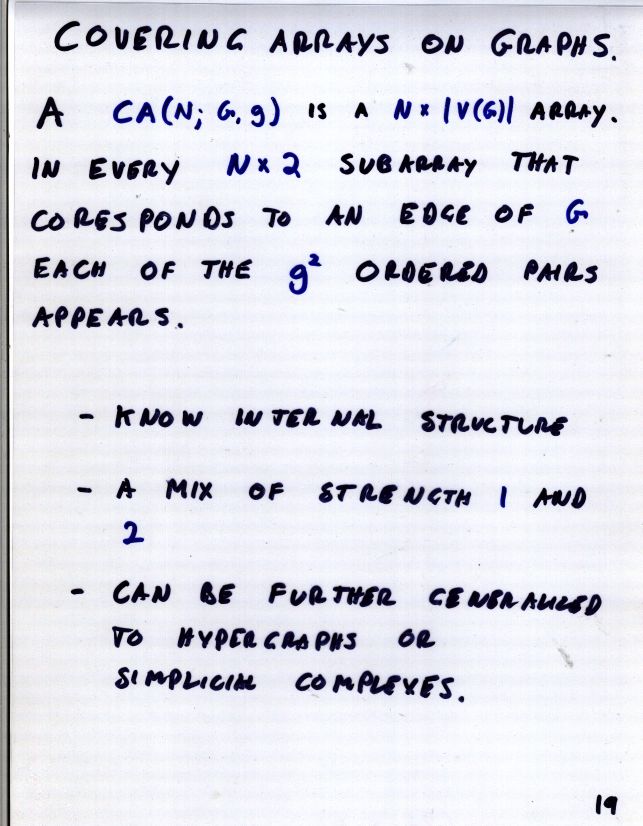 COVERING ARRAYS ON GRAPHS.
A CA(N; G, g) IS A N x |V(G)| ARRAY.
IN EVERY N x 2 SUBARRAY THAT
CORESPONDS TO AN EDGE OF G
EACH OF THE g² ORDERED PAIRS
APPEARS.
- KNOW INTERNAL STRUCTURE
- A MIX OF STRENGTH 1 AND
2
- CAN BE FURTHER GENERALIZED
TO HYPERGRAPHS OR
SIMPLICIAL COMPLEXES.
19